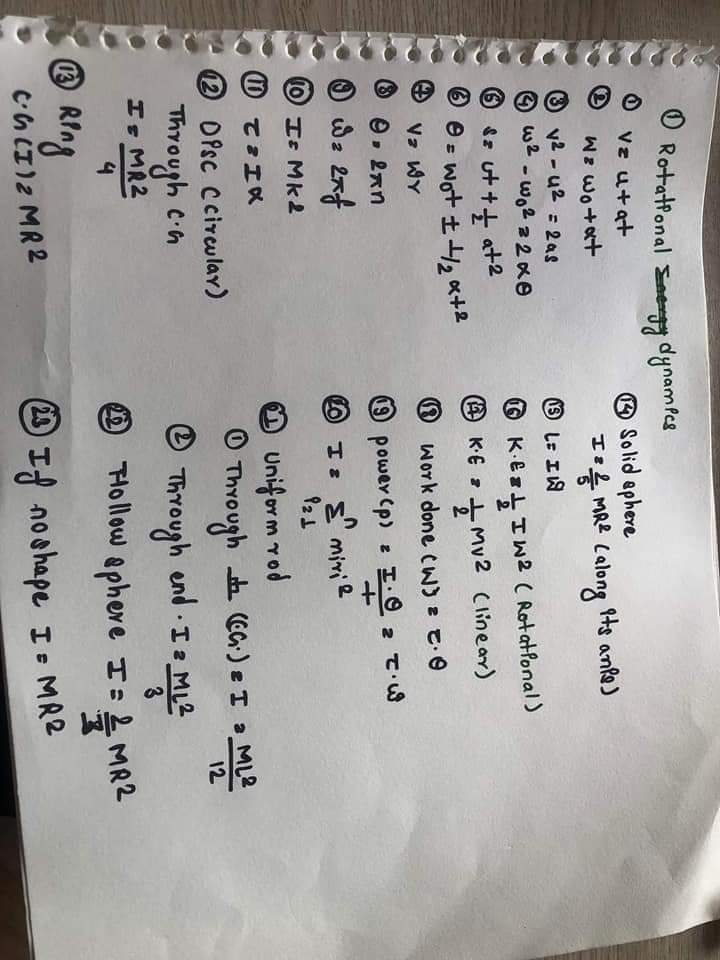 ① Rotational dynamics
① v = u + at
② w = w₀ + αt
③ v² - u² = 2as
④ w² - w₀² = 2αθ
⑤ s = ut + 1/2 at²
⑥ θ = w₀t ± 1/2 αt²
⑦ v = wr
⑧ θ = 2πn
⑨ w = 2πf
⑩ I = Mk²
⑪ τ = Iα
⑫ Disc (circular)
Through C.G
I = MR²/4
⑬ Ring
C.G (I) = MR²
⑭ Solid sphere
I = 2/5 MR² (along its axis)
⑮ L = Iw
⑯ K.E = 1/2 Iw² (Rotational)
⑰ K.E = 1/2 Mv² (linear)
⑱ Work done (W) = τ.θ
⑲ power (p) = I.θ/t = τ.w
⑳ I = Σⁿᵢ₌₁ miri²
㉑ Uniform rod
① Through (C.G.) = I = ML²/12
② Through end. I = ML²/3
㉒ Hollow sphere I = 2/3 MR²
㉓ If no shape I = MR²